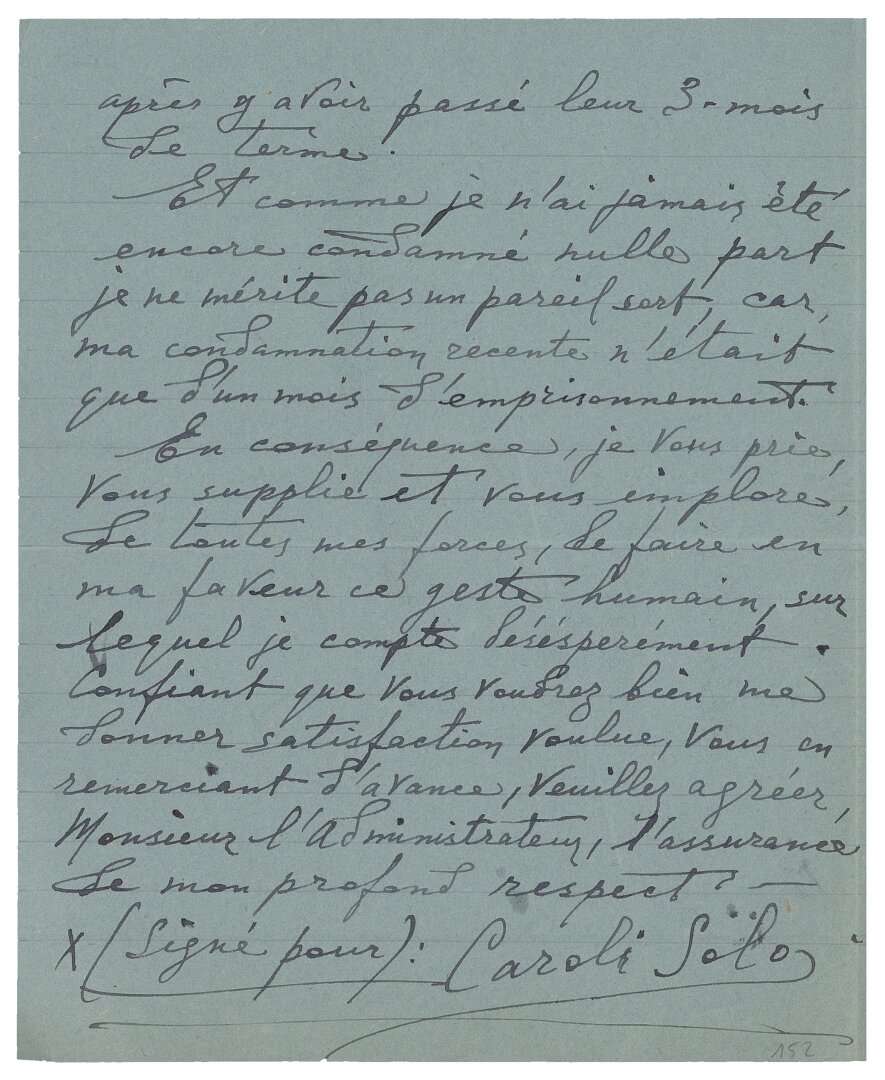 après y avoir passé leur 3-mois
de terme.
Et comme je n'ai jamais été
encore condamné nulle part
je ne mérite pas un pareil sort, car,
ma condamnation recente n'était
que d'un mois d'emprisonnement.
En conséquence, je vous prie,
vous supplie et vous implore,
de toutes mes forces, de faire en
ma faveur ce geste humain, sur
lequel je compte désésperément.
Confiant que vous voudrez bien me
donner satisfaction voulue, vous en
remerciant d'avance, veuillez agréer,
Monsieur l'Administrateur, l'assurance
de mon profond respect? —
X (Signé pour): Caroli Sölo
152